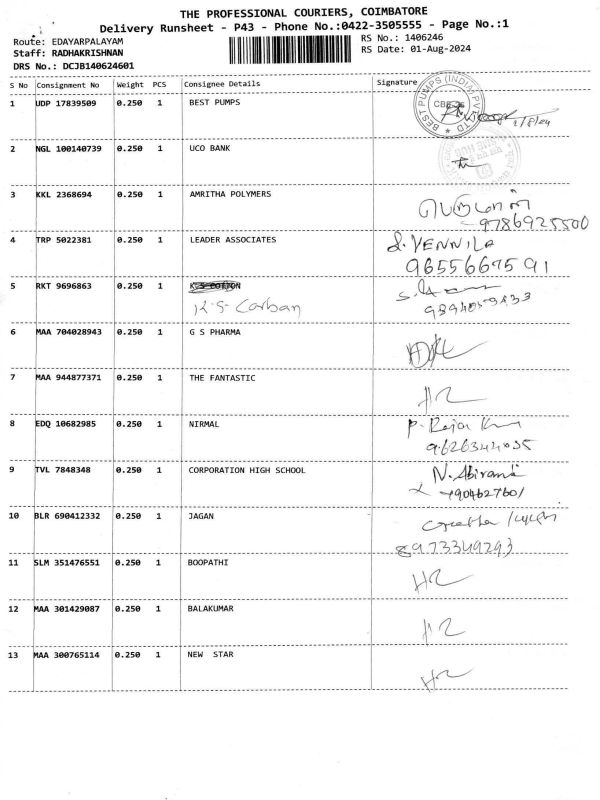 THE PROFESSIONAL COURIERS, COIMBATORE
Delivery Runsheet - P43 - Phone No.:0422-3505555 - Page No.:1
Route: EDAYARPALAYAM RS No.: 1406246
Staff: RADHAKRISHNAN RS Date: 01-Aug-2024
DRS No.: DCJB140624601
S No Consignment No Weight PCS Consignee Details Signature
1 UDP 17839509 0.250 1 BEST PUMPS
BEST PUMPS (INDIA) PVT LTD
2 NGL 100140739 0.250 1 UCO BANK
3 KKL 2368694 0.250 1 AMRITHA POLYMERS
9786925500
4 TRP 5022381 0.250 1 LEADER ASSOCIATES S. VENNILA
9655667591
5 RKT 9696863 0.250 1 K S COTTON
K.S. Carban
6 MAA 704028943 0.250 1 G S PHARMA
7 MAA 944877371 0.250 1 THE FANTASTIC
8 EDQ 10682985 0.250 1 NIRMAL
9 TVL 7848348 0.250 1 CORPORATION HIGH SCHOOL N. Abirami
7904627601
10 BLR 690412332 0.250 1 JAGAN
8973349293
11 SLM 351476551 0.250 1 BOOPATHI
12 MAA 301429087 0.250 1 BALAKUMAR
13 MAA 300765114 0.250 1 NEW STAR